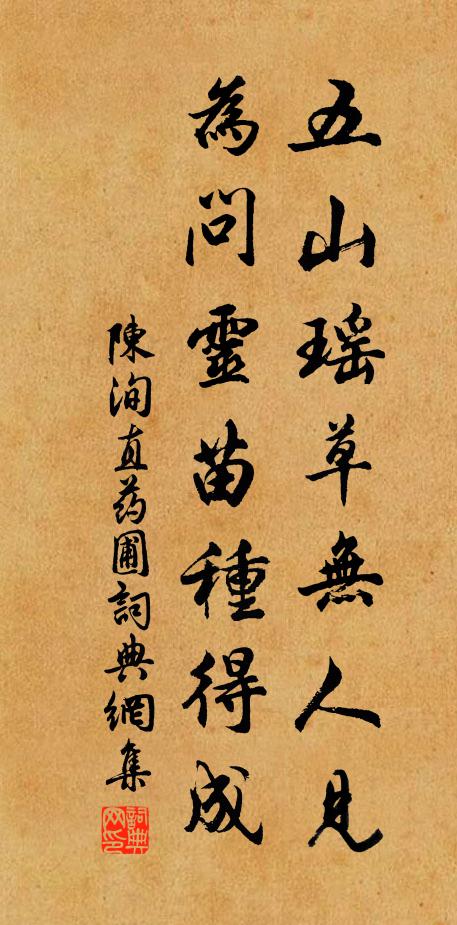 五山瑶草無人見
為問靈苗種得成
陳洵直药圃詞典網集
詞典网印